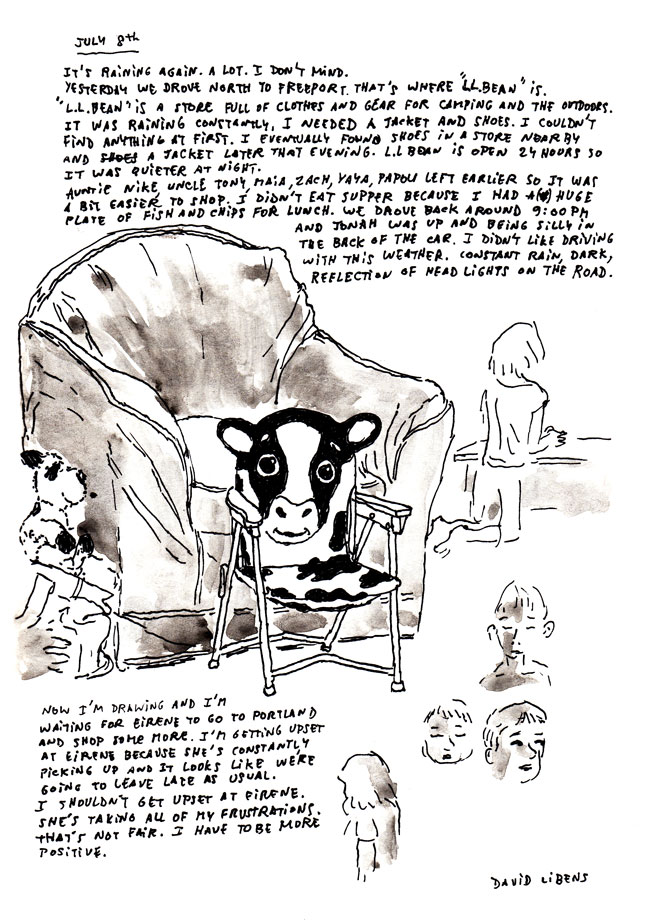 JULY 8th
IT'S RAINING AGAIN. A LOT. I DON'T MIND.
YESTERDAY WE DROVE NORTH TO FREEPORT. THAT'S WHERE "L.L.BEAN" IS.
"L.L.BEAN" IS A STORE FULL OF CLOTHES AND GEAR FOR CAMPING AND THE OUTDOORS.
IT WAS RAINING CONSTANTLY. I NEEDED A JACKET AND SHOES. I COULDN'T
FIND ANYTHING AT FIRST. I EVENTUALLY FOUND SHOES IN A STORE NEARBY
AND SHOES A JACKET LATER THAT EVENING. L.L BEAN IS OPEN 24 HOURS SO
IT WAS QUIETER AT NIGHT.
AUNTIE NIKE, UNCLE TONY, MAIA, ZACH, YAYA, PAPOU LEFT EARLIER SO IT WAS
A BIT EASIER TO SHOP. I DIDN'T EAT SUPPER BECAUSE I HAD A HUGE
PLATE OF FISH AND CHIPS FOR LUNCH. WE DROVE BACK AROUND 9:00 PM
AND JONAH WAS UP AND BEING SILLY IN
THE BACK OF THE CAR. I DIDN'T LIKE DRIVING
WITH THIS WEATHER. CONSTANT RAIN, DARK,
REFLECTION OF HEAD LIGHTS ON THE ROAD.
NOW I'M DRAWING AND I'M
WAITING FOR EIRENE TO GO TO PORTLAND
AND SHOP SOME MORE. I'M GETTING UPSET
AT EIRENE BECAUSE SHE'S CONSTANTLY
PICKING UP AND IT LOOKS LIKE WE'RE
GOING TO LEAVE LATE AS USUAL.
I SHOULDN'T GET UPSET AT EIRENE.
SHE'S TAKING ALL OF MY FRUSTRATIONS.
THAT'S NOT FAIR. I HAVE TO BE MORE
POSITIVE.
DAVID LIBENS